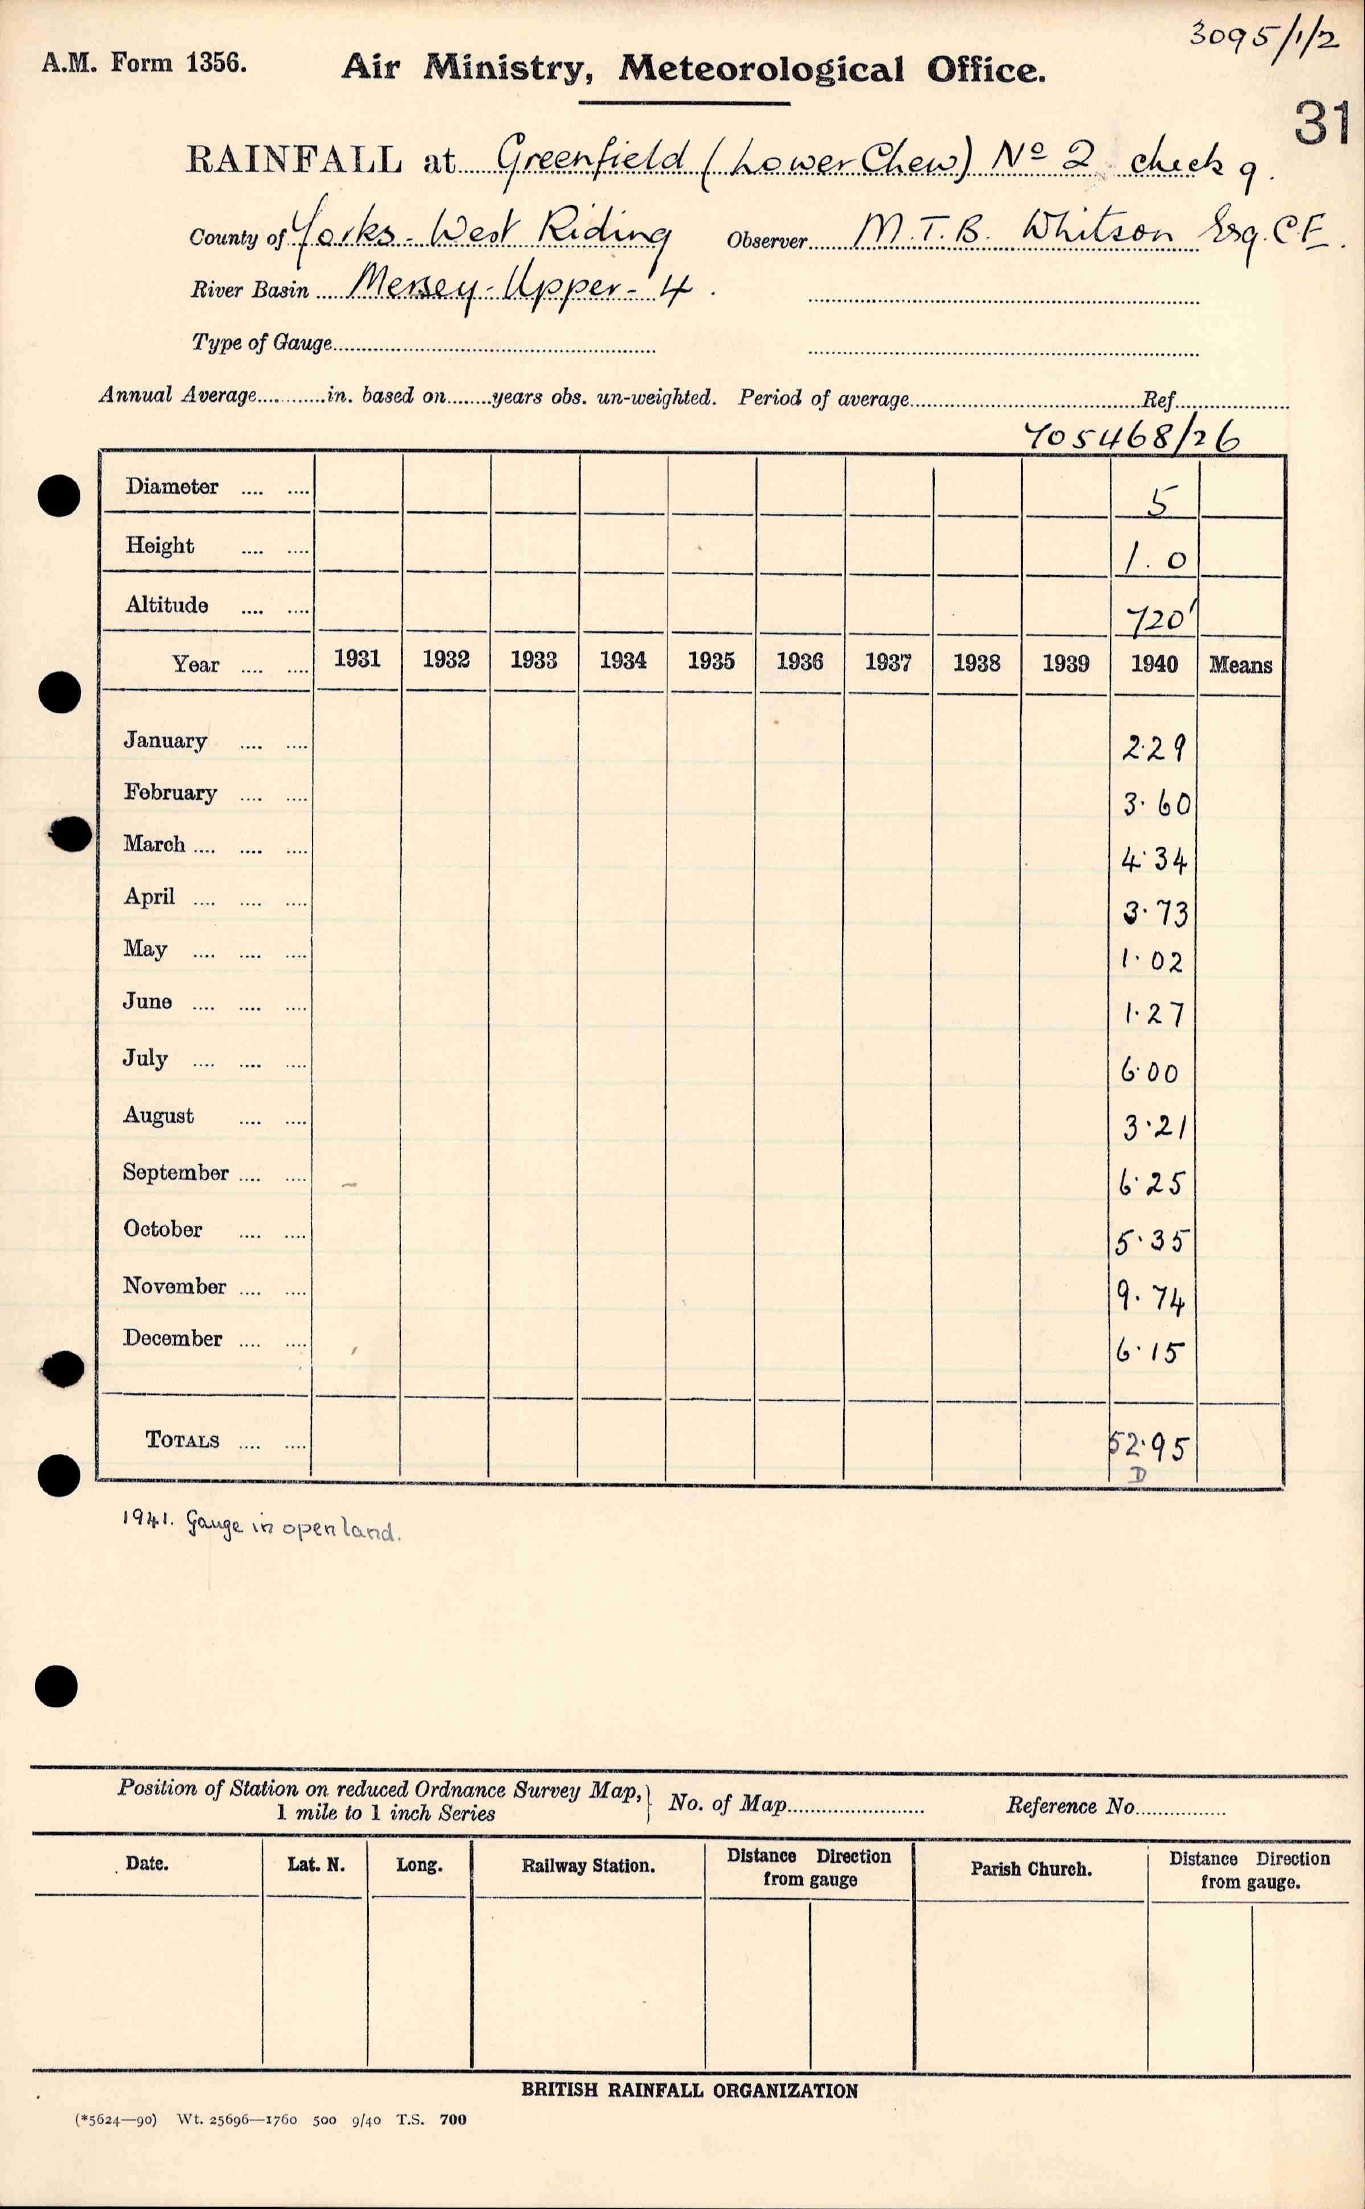 3095/1/2
A.M. Form 1356. Air Ministry, Meteorological Office.
31
RAINFALL at Greenfield (Lower Chew) No 2 check g.
County of Yorks. West Riding Observer M.T.B. Whitson Esq. C.E.
River Basin Mersey-Upper-4.
Type of Gauge
Annual Average............in. based on........years obs. un-weighted. Period of average Ref
405468/26
Diameter .... .... 5
Height .... .... 1.0
Altitude .... .... 720'
Year .... .... 1931 1932 1933 1934 1935 1936 1937 1938 1939 1940 Means
January .... .... 2.29
February .... .... 3.60
March .... .... .... 4.34
April .... .... .... 3.73
May .... .... .... 1.02
June .... .... .... 1.27
July .... .... .... 6.00
August .... .... 3.21
September .... .... 6.25
October .... .... 5.35
November .... .... 9.74
December .... .... 6.15
TOTALS .... .... 52.95
D
1941. Gauge in open land.
Position of Station on reduced Ordnance Survey Map,} No. of Map Reference No
1 mile to 1 inch Series
Date. Lat. N. Long. Railway Station. Distance Direction from gauge Parish Church. Distance Direction from gauge.
BRITISH RAINFALL ORGANIZATION
(*5624—90) Wt. 25696—1760 500 9/40 T.S. 700